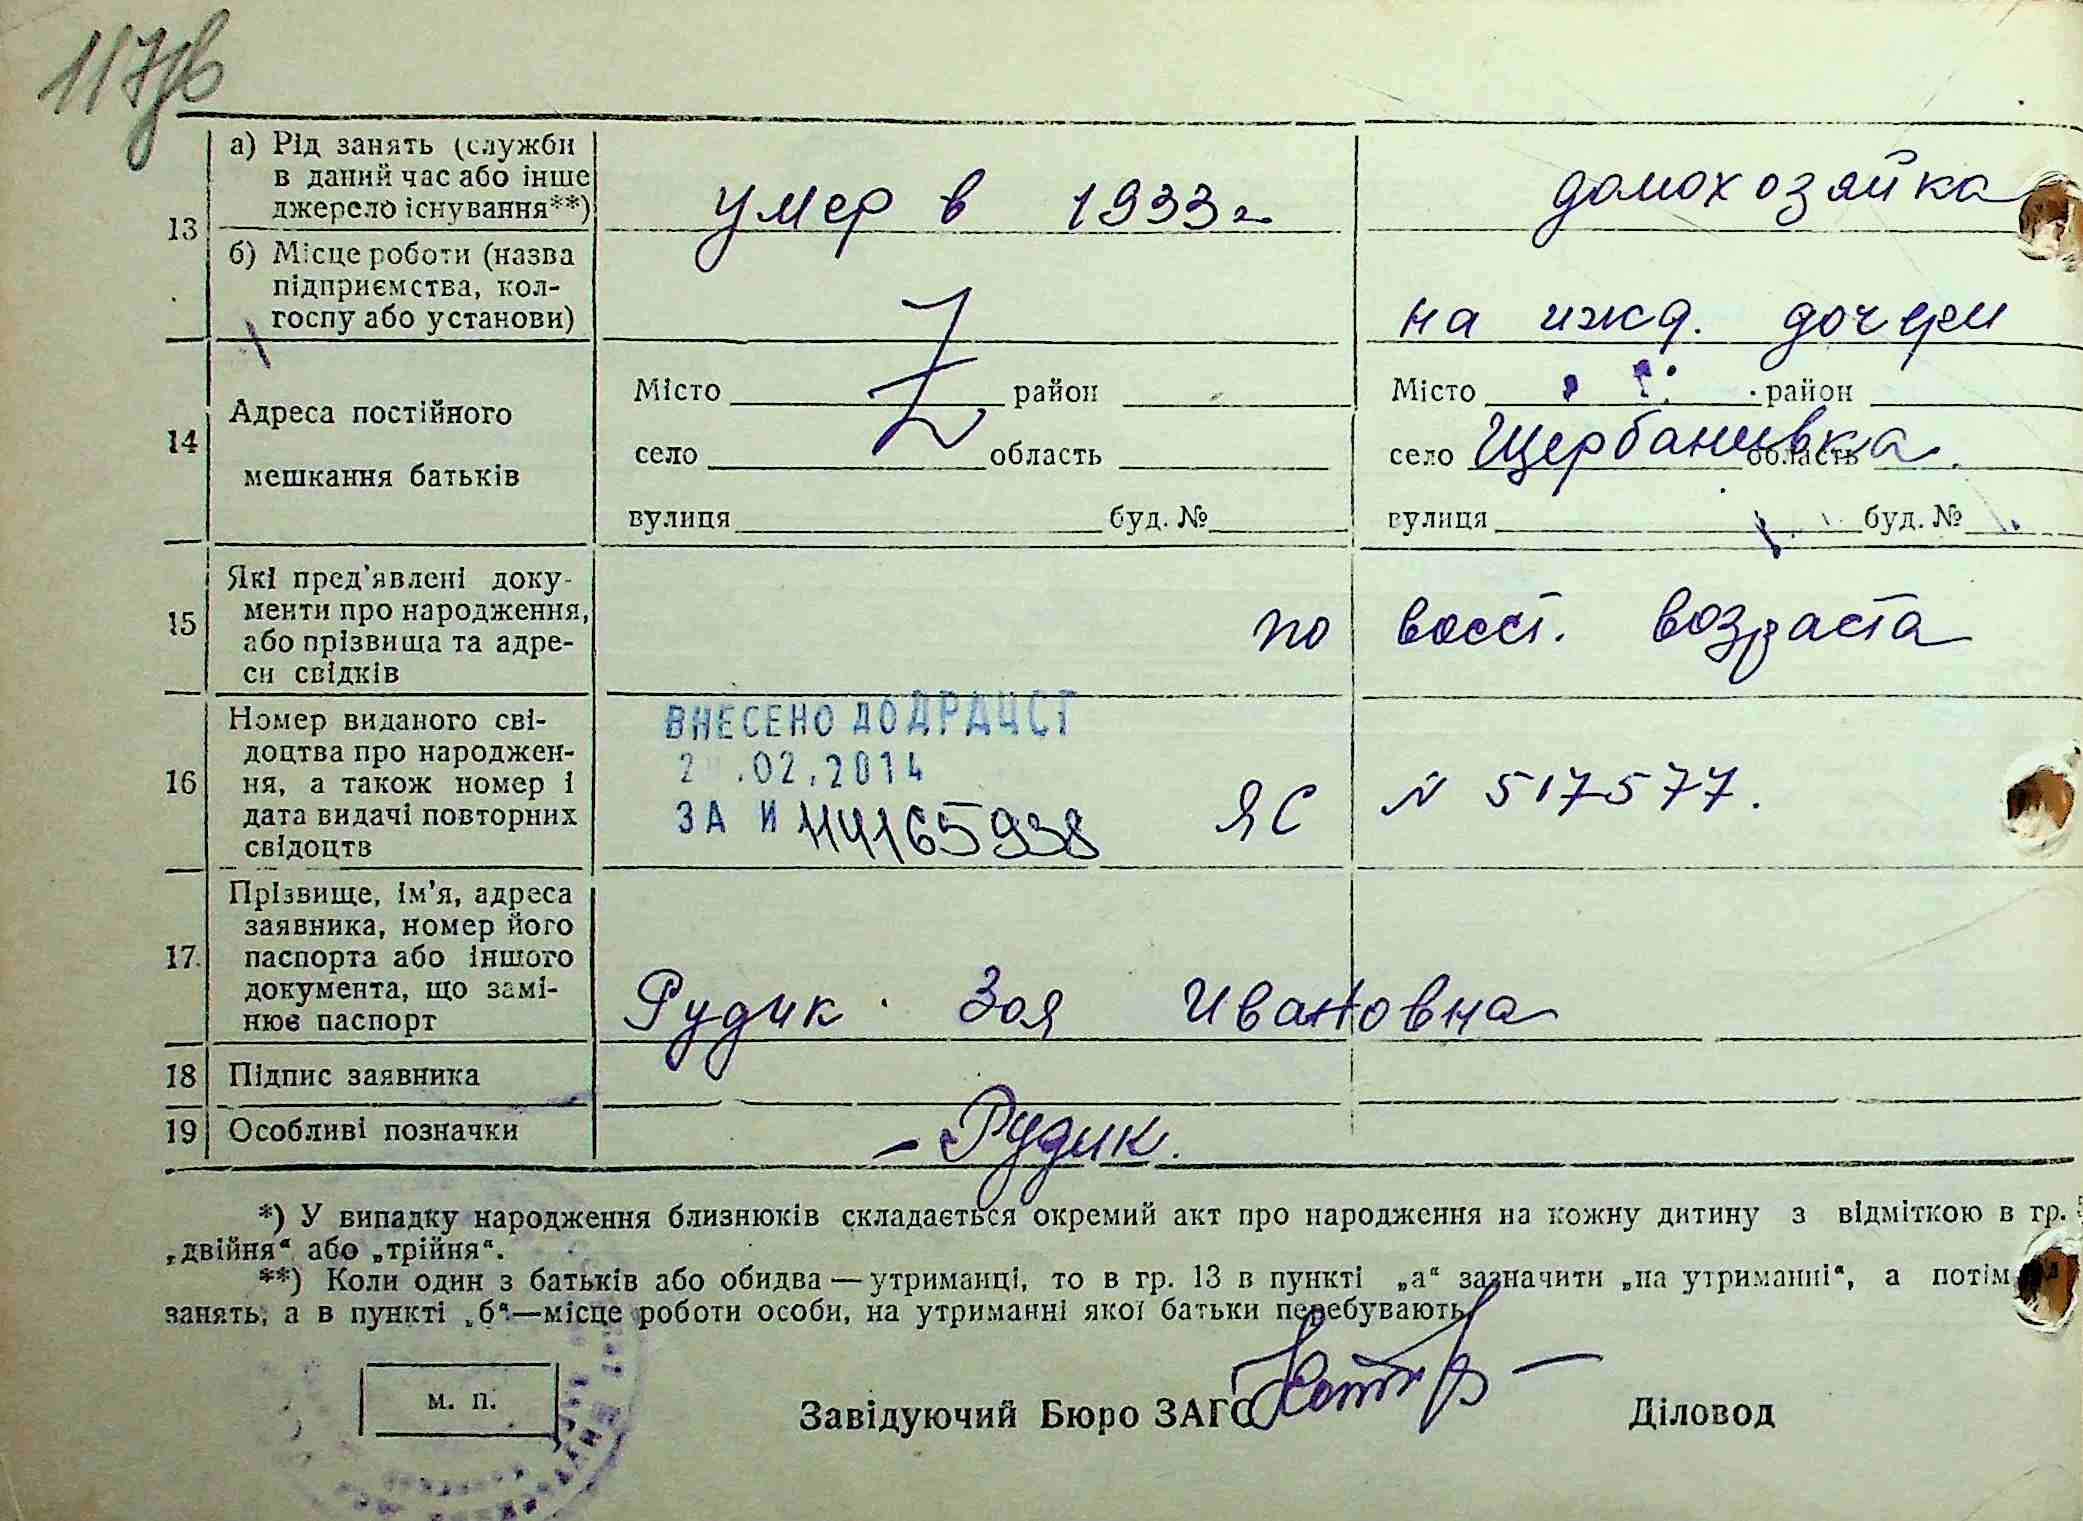 117зв
а) Рід занять (служби
в даний час або інше
джерело існування**)
умер в 1933 г
домохозяйка
13
б) Місце роботи (назва
підприємства, кол-
госпу або установи)
на ижд. дочери
14
Адреса постійного
мешкання батьків
Місто район
Місто район
село область
село Щербанивка область
вулиця буд. №
вулиця буд. №
15
Які пред'явлені доку-
менти про народження,
або прізвища та адре-
си свідків
по восст. возраста
16
Номер виданого сві-
доцтва про народжен-
ня, а також номер і
дата видачі повторних
свідоцтв
ВНЕСЕНО ДО ДРАЦСГ
.02.2014
ЗА №
ЯС № 517577.
17
Прізвище, ім'я, адреса
заявника, номер його
паспорта або іншого
документа, що замі-
нює паспорт
Рудик Зоя Ивановна
18 Підпис заявника
19 Особливі позначки
Рудик.
*) У випадку народження близнюків складається окремий акт про народження на кожну дитину з відміткою в гр. 5
„двійня“ або „трійня“.
**) Коли один з батьків або обидва — утриманці, то в гр. 13 в пункті „а“ зазначити „на утриманні“, а потім
занять, а в пункті „б“ — місце роботи особи, на утриманні якої батьки перебувають
м. п.
Завідуючий Бюро ЗАГС
Діловод